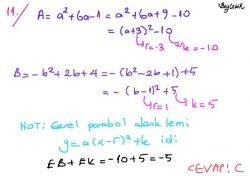 11.) A = a²+6a-1 = a²+6a+9-10
= (a+3)²-10
r=-3 k=-10
B = -b²+2b+4 = -(b²-2b+1)+5
= -(b-1)²+5
r=1 k=5
NOT: Genel parabol denklemi
y=a(x-r)²+k idi
EB+EK = -10+5 = -5
CEVAP: C